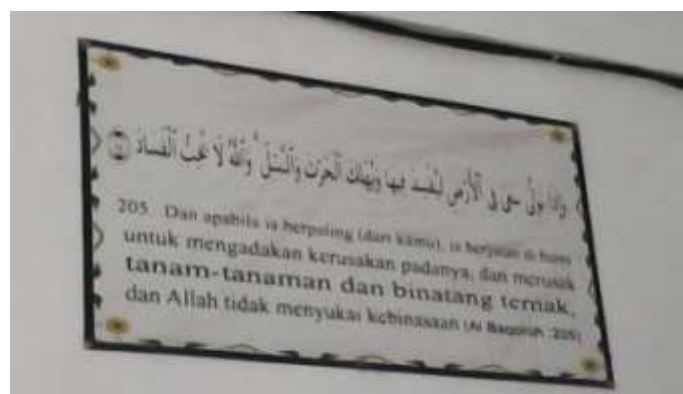 وَإِذَا تَوَلَّىٰ سَعَىٰ فِي الْأَرْضِ لِيُفْسِدَ فِيهَا وَيُهْلِكَ الْحَرْثَ وَالنَّسْلَ ۗ وَاللَّهُ لَا يُحِبُّ الْفَسَادَ
205. Dan apabila ia berpaling (dari kamu), ia berjalan di bumi
untuk mengadakan kerusakan padanya, dan merusak
tanam-tanaman dan binatang ternak,
dan Allah tidak menyukai kebinasaan (Al Baqoroh :205)